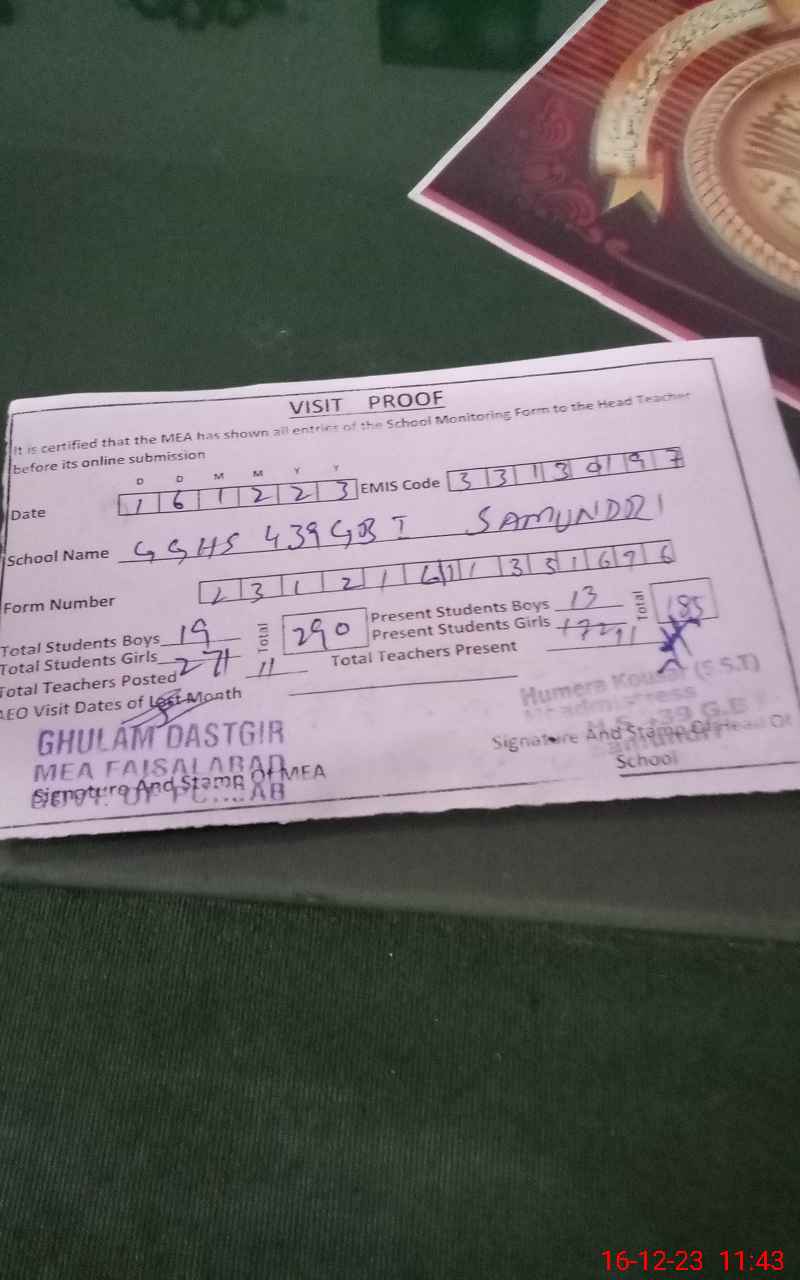 VISIT PROOF
It is certified that the MEA has shown all entries of the School Monitoring Form to the Head Teacher
before its online submission
D D M M Y Y
Date 1 6 1 2 2 3 EMIS Code 3 3 1 3 0 1 9 7
School Name GGHS 439 GB I SAMUNDRI
Form Number
Total Students Boys 19 Total 290 Present Students Boys 13 Total 185
Total Students Girls 271 Present Students Girls 172
Total Teachers Posted 11 Total Teachers Present 11
AEO Visit Dates of Last Month
GHULAM DASTGIR
MEA FAISALABAD
Signature And Stamp Of MEA
Humera Kousar (S.S.T)
Headmistress
Signature And Stamp Of Head Of
School
16-12-23 11:43